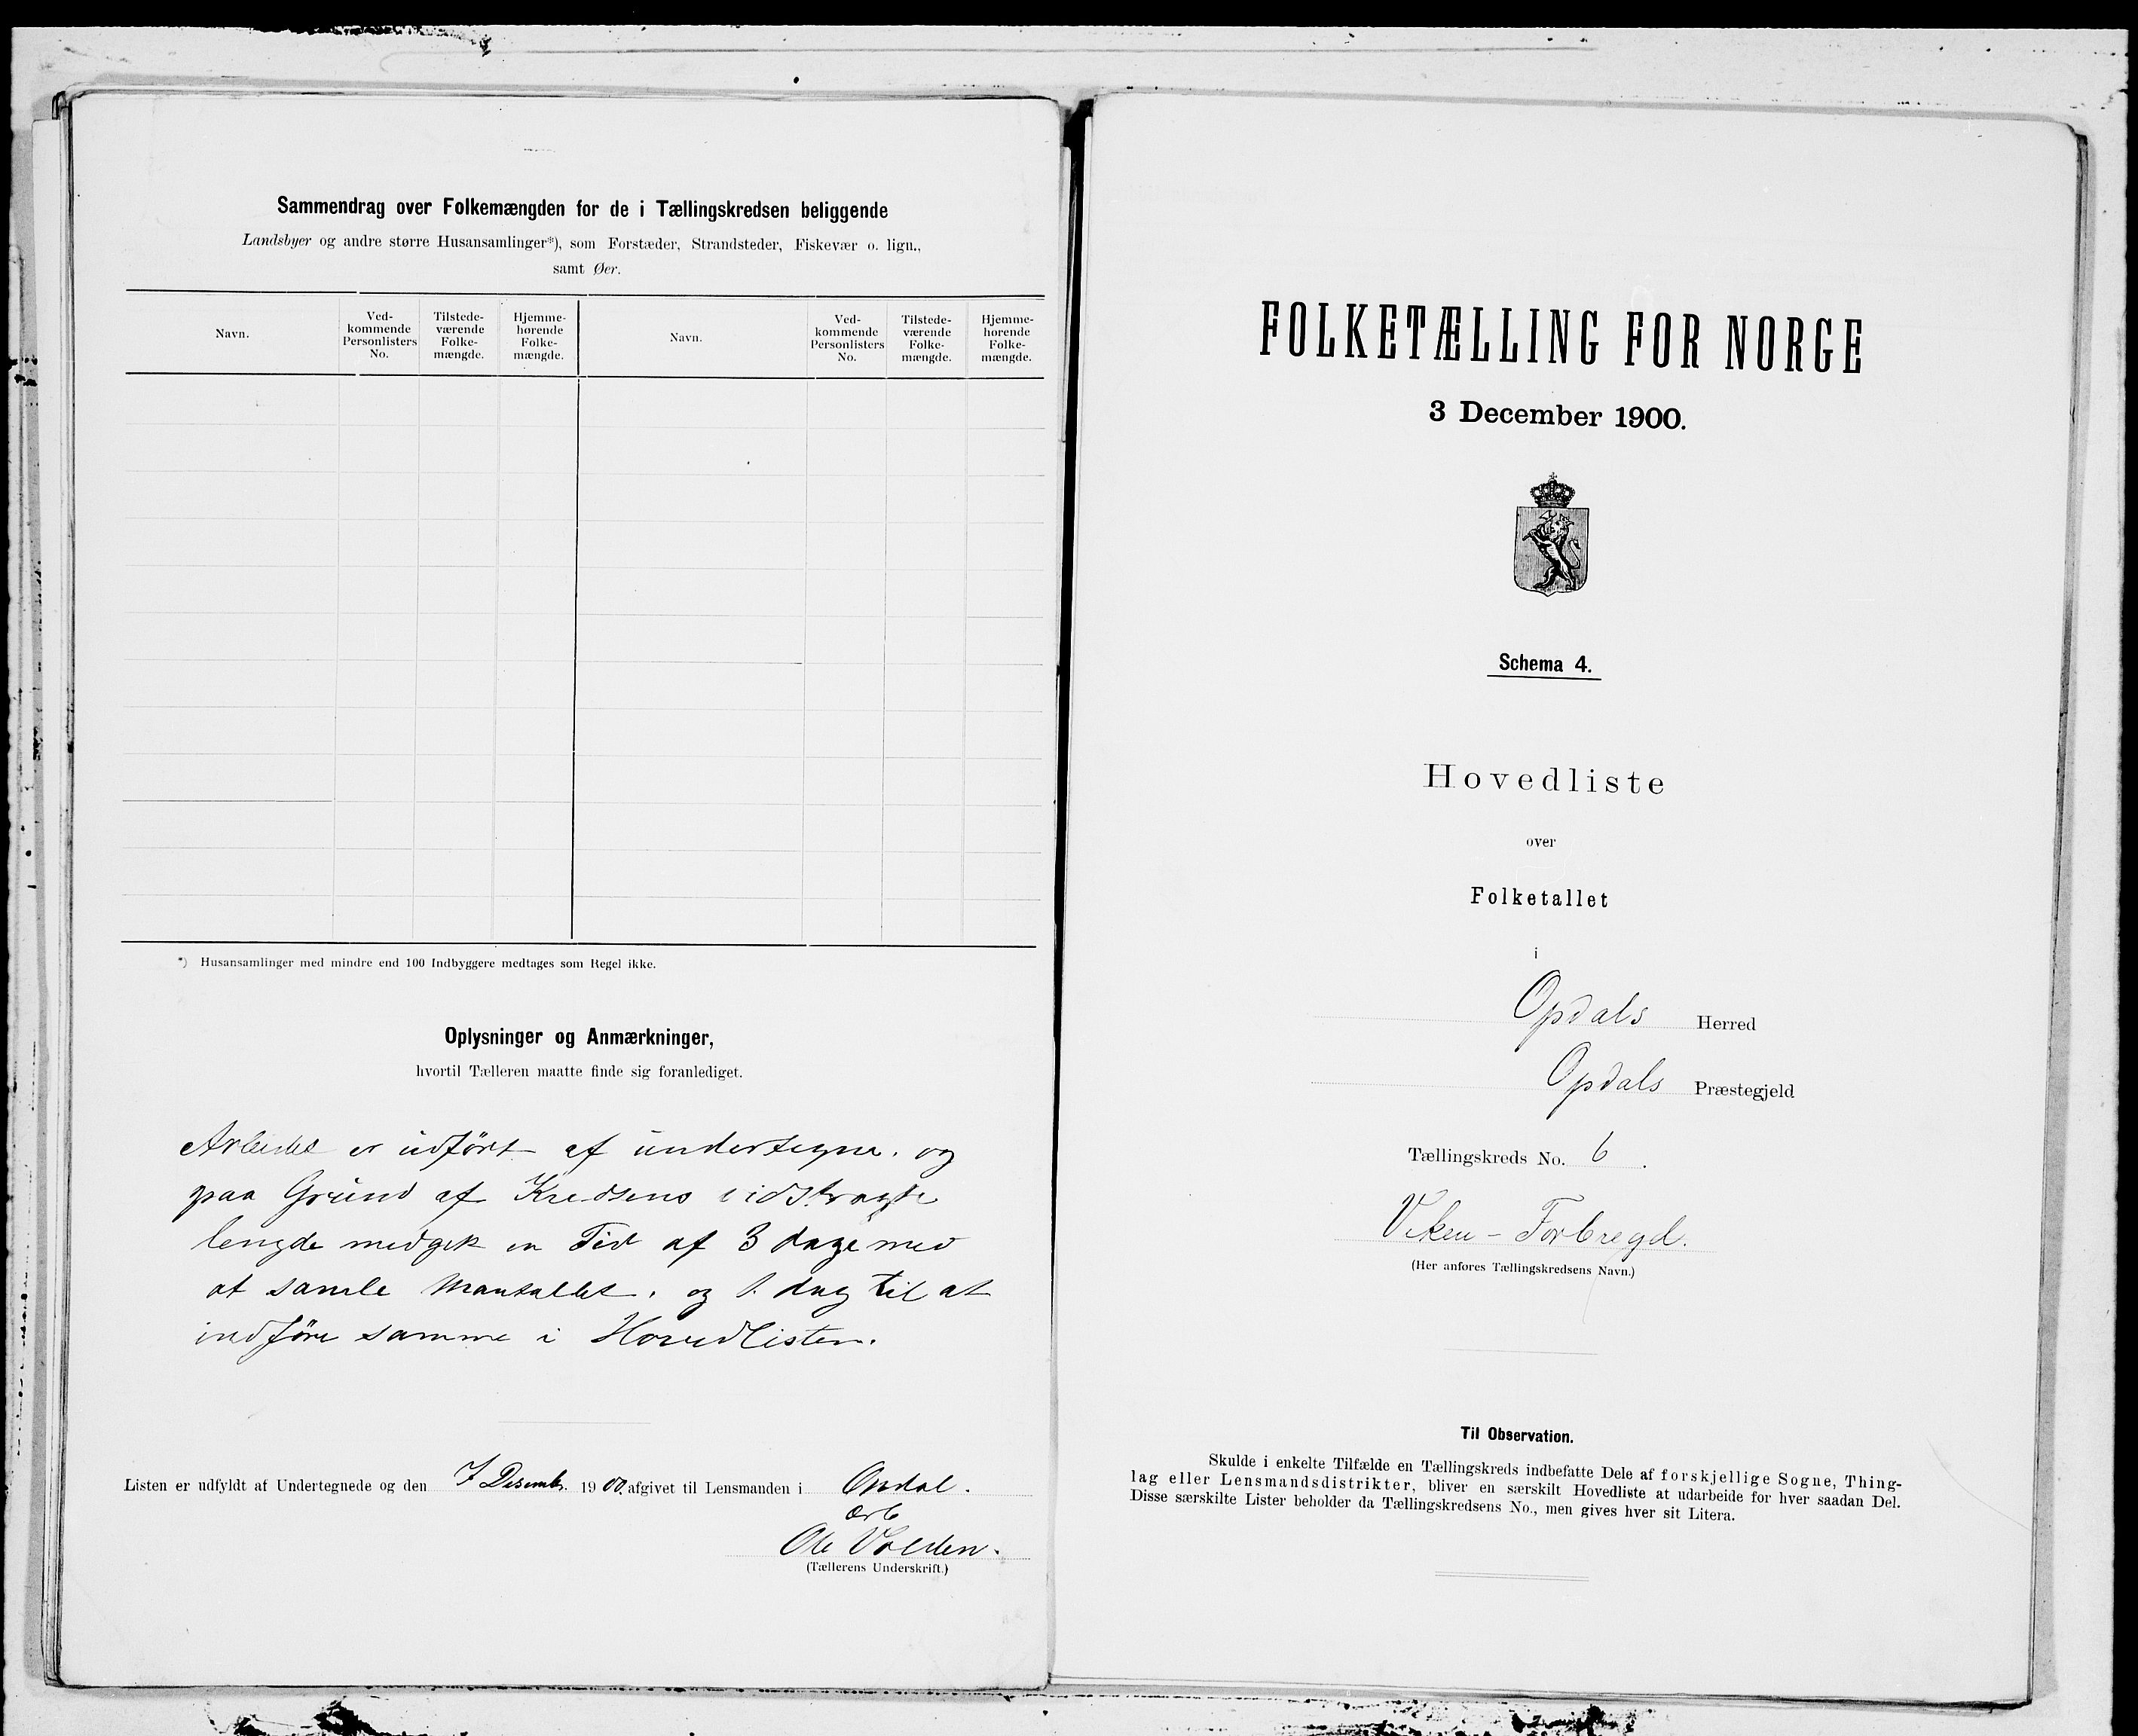 Sammendrag over Folkemængden for de i Tællingskredsen beliggende
Landsbyer og andre større Husansamlinger*), som Forstæder, Strandsteder, Fiskevær o. lign.,
samt Øer.
Navn.
Ved-
kommende
Personlisters
No.
Tilstede-
værende
Folke-
mængde.
Hjemme-
hørende
Folke-
mængde.
Navn.
Ved-
kommende
Personlisters
No.
Tilstede-
værende
Folke-
mængde.
Hjemme-
hørende
Folke-
mængde.
*) Husansamlinger med mindre end 100 Indbyggere medtages som Regel ikke.
Oplysninger og Anmærkninger,
hvortil Tælleren maatte finde sig foranlediget.
Arbeidet er udført af undertegne. og
paa Grund af Kredsens vidstragte
lengde medgik en Tid af 3 dage med
at samle Mantallet. og 1. dag til at
indføre samme i Hovedlisten.
Listen er udfyldt af Undertegnede og den 7 Desembr. 1900. afgivet til Lensmanden i Opdal.
Ole Volden.
(Tællerens Underskrift.)
FOLKETÆLLING FOR NORGE
3 December 1900.
Schema 4.
Hovedliste
over
Folketallet
i
Opdals Herred
Opdals Præstegjeld
Tællingskreds No. 6.
Viken - Forbregd.
(Her anføres Tællingskredsens Navn.)
Til Observation.
Skulde i enkelte Tilfælde en Tællingskreds indbefatte Dele af forskjellige Sogne, Thing-
lag eller Lensmandsdistrikter, bliver en særskilt Hovedliste at udarbeide for hver saadan Del.
Disse særskilte Lister beholder da Tællingskredsens No., men gives hver sit Litera.